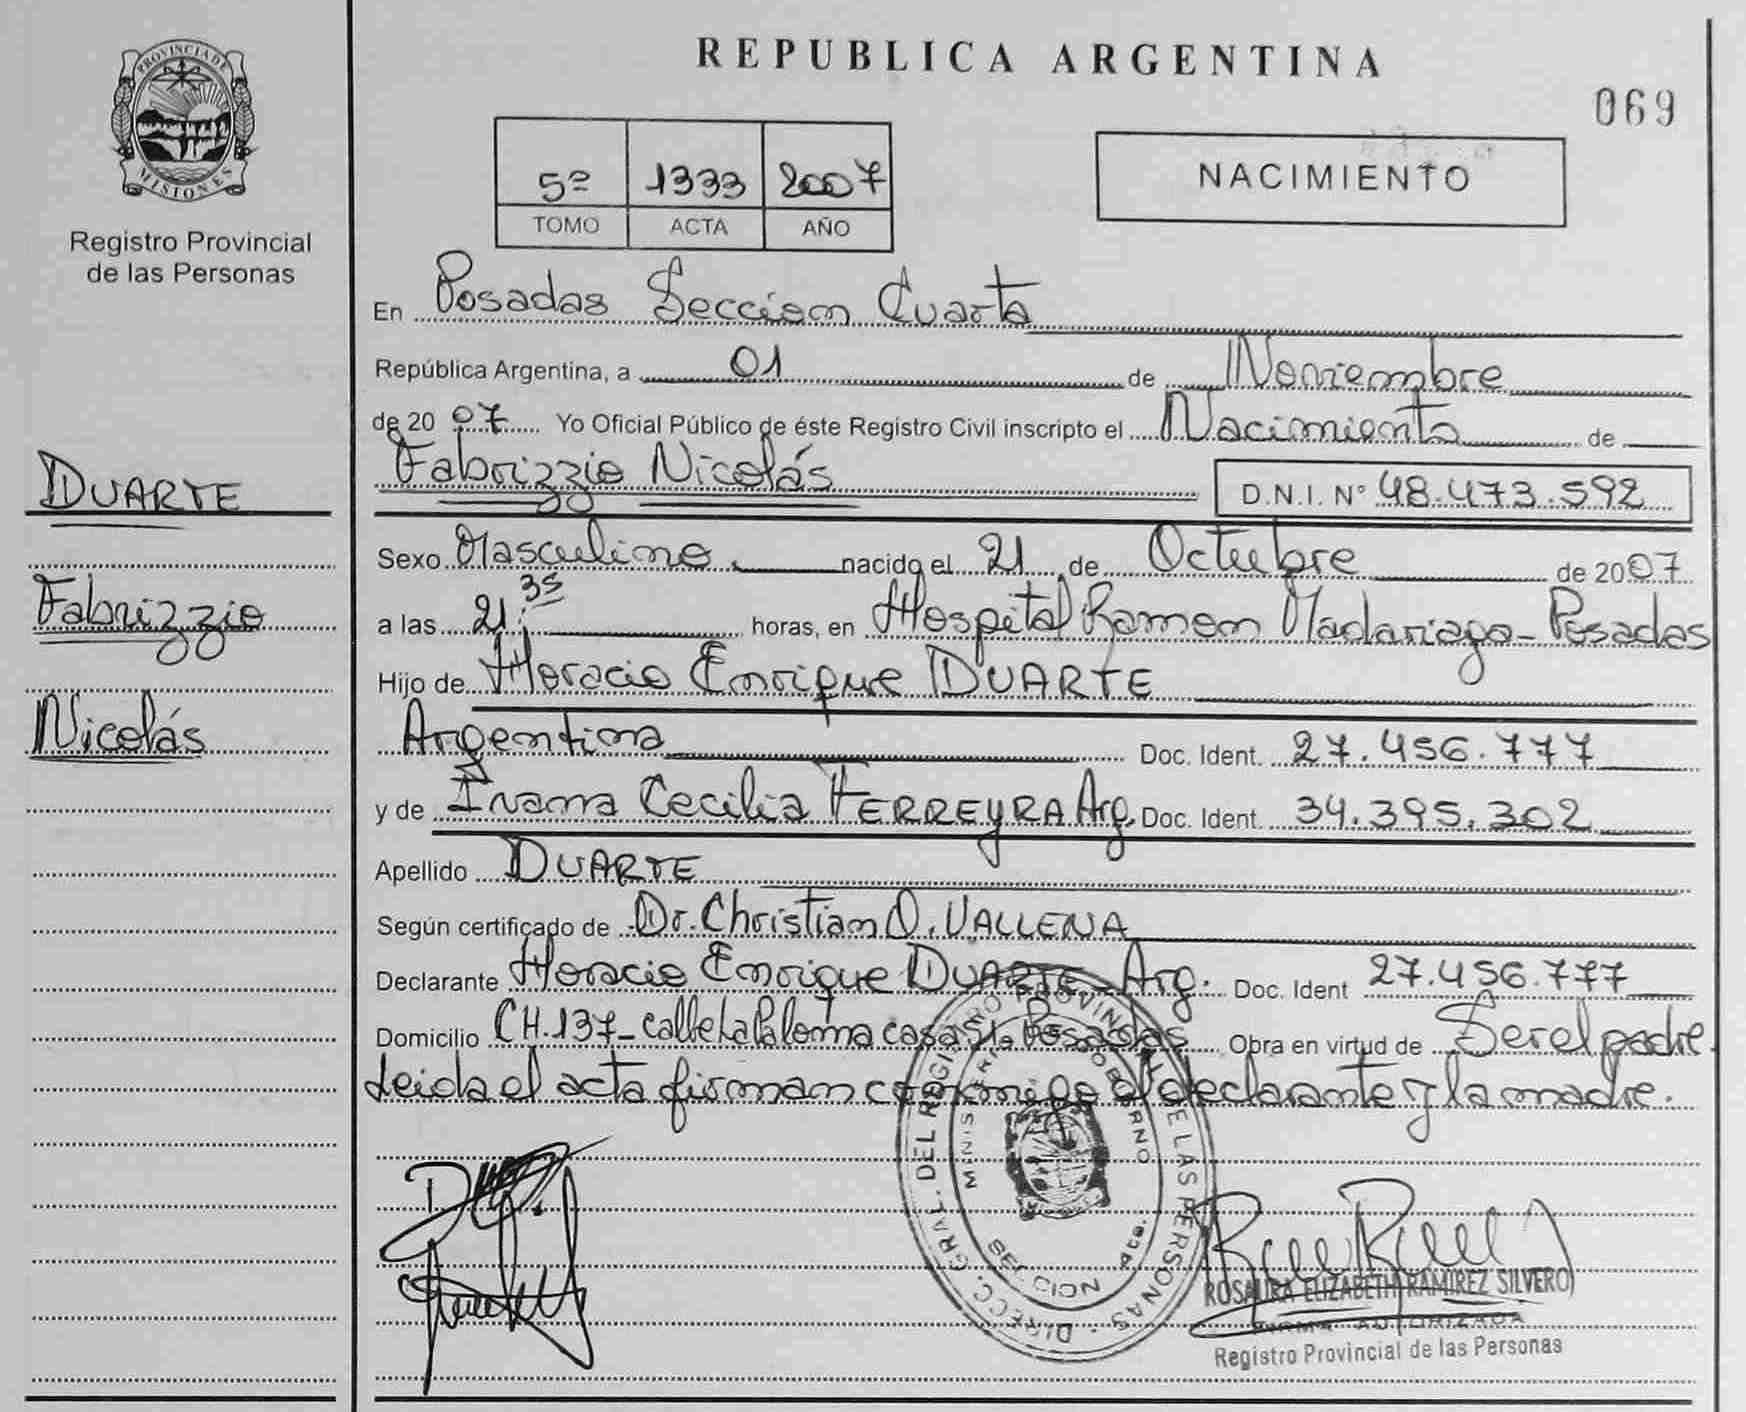 PROVINCIA DE MISIONES
Registro Provincial
de las Personas
DUARTE
Fabrizzio
Nicolás
REPUBLICA ARGENTINA
069
5º 1333 2007
TOMO ACTA AÑO
NACIMIENTO
En Posadas Sección Cuarta
República Argentina, a 01 de Noviembre
de 2007 Yo Oficial Público de éste Registro Civil inscripto el Nacimiento de
Fabrizzio Nicolás D.N.I. Nº 48.473.592
Sexo Masculino nacido el 21 de Octubre de 2007
a las 21:35 horas, en Hospital Ramon Madariaga - Posadas
Hijo de Horacio Enrique DUARTE
Argentina Doc. Ident. 27.456.777
y de Ivana Cecilia FERREYRA Arg. Doc. Ident. 34.395.302
Apellido DUARTE
Según certificado de Dr. Christian D. VALLENA
Declarante Horacio Enrique DUARTE - Arg. Doc. Ident 27.456.777
Domicilio CH.137 - calle La Paloma casa Posadas Obra en virtud de Ser el padre.
Leida el acta firman conmigo el declarante y la madre.
DIRECC. GRAL. DEL REGISTRO PROVINCIAL DE LAS PERSONAS
MINISTERIO GOBIERNO
SECCION 4ta.
ROSAURA ELIZABETH RAMIREZ SILVERO
FIRMA AUTORIZADA
Registro Provincial de las Personas